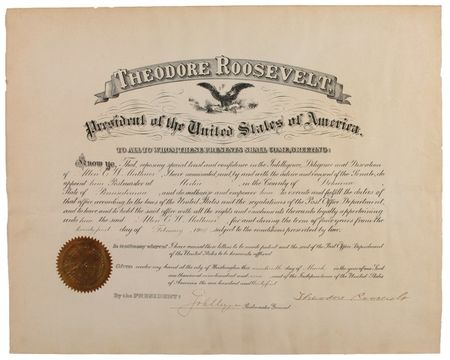 THEODORE ROOSEVELT,
President of the United States of America.
TO ALL TO WHOM THESE PRESENTS SHALL COME, GREETING:
Know ye, That, reposing special trust and confidence in the Intelligence, Diligence and Discretion
of I have nominated, and, by and with the advice and consent of the Senate, do
appoint him Postmaster at in the County of
State of and do authorize and empower him to execute and fulfil the duties of
that office according to the laws of the United States and the regulations of the Post Office Department,
and to have and to hold the said office with all the rights and emoluments thereunto legally appertaining
unto him the said for and during the term of four years from the
day of February subject to the conditions prescribed by law.
In testimony whereof I have caused these letters to be made patent and the seal of the Post Office Department
of the United States to be hereunto affixed.
Given under my hand at the city of Washington the day of March in the year of our Lord
one thousand nine hundred and and of the Independence of the United States
of America the one hundred and
By the PRESIDENT:
Postmaster General.
Theodore Roosevelt